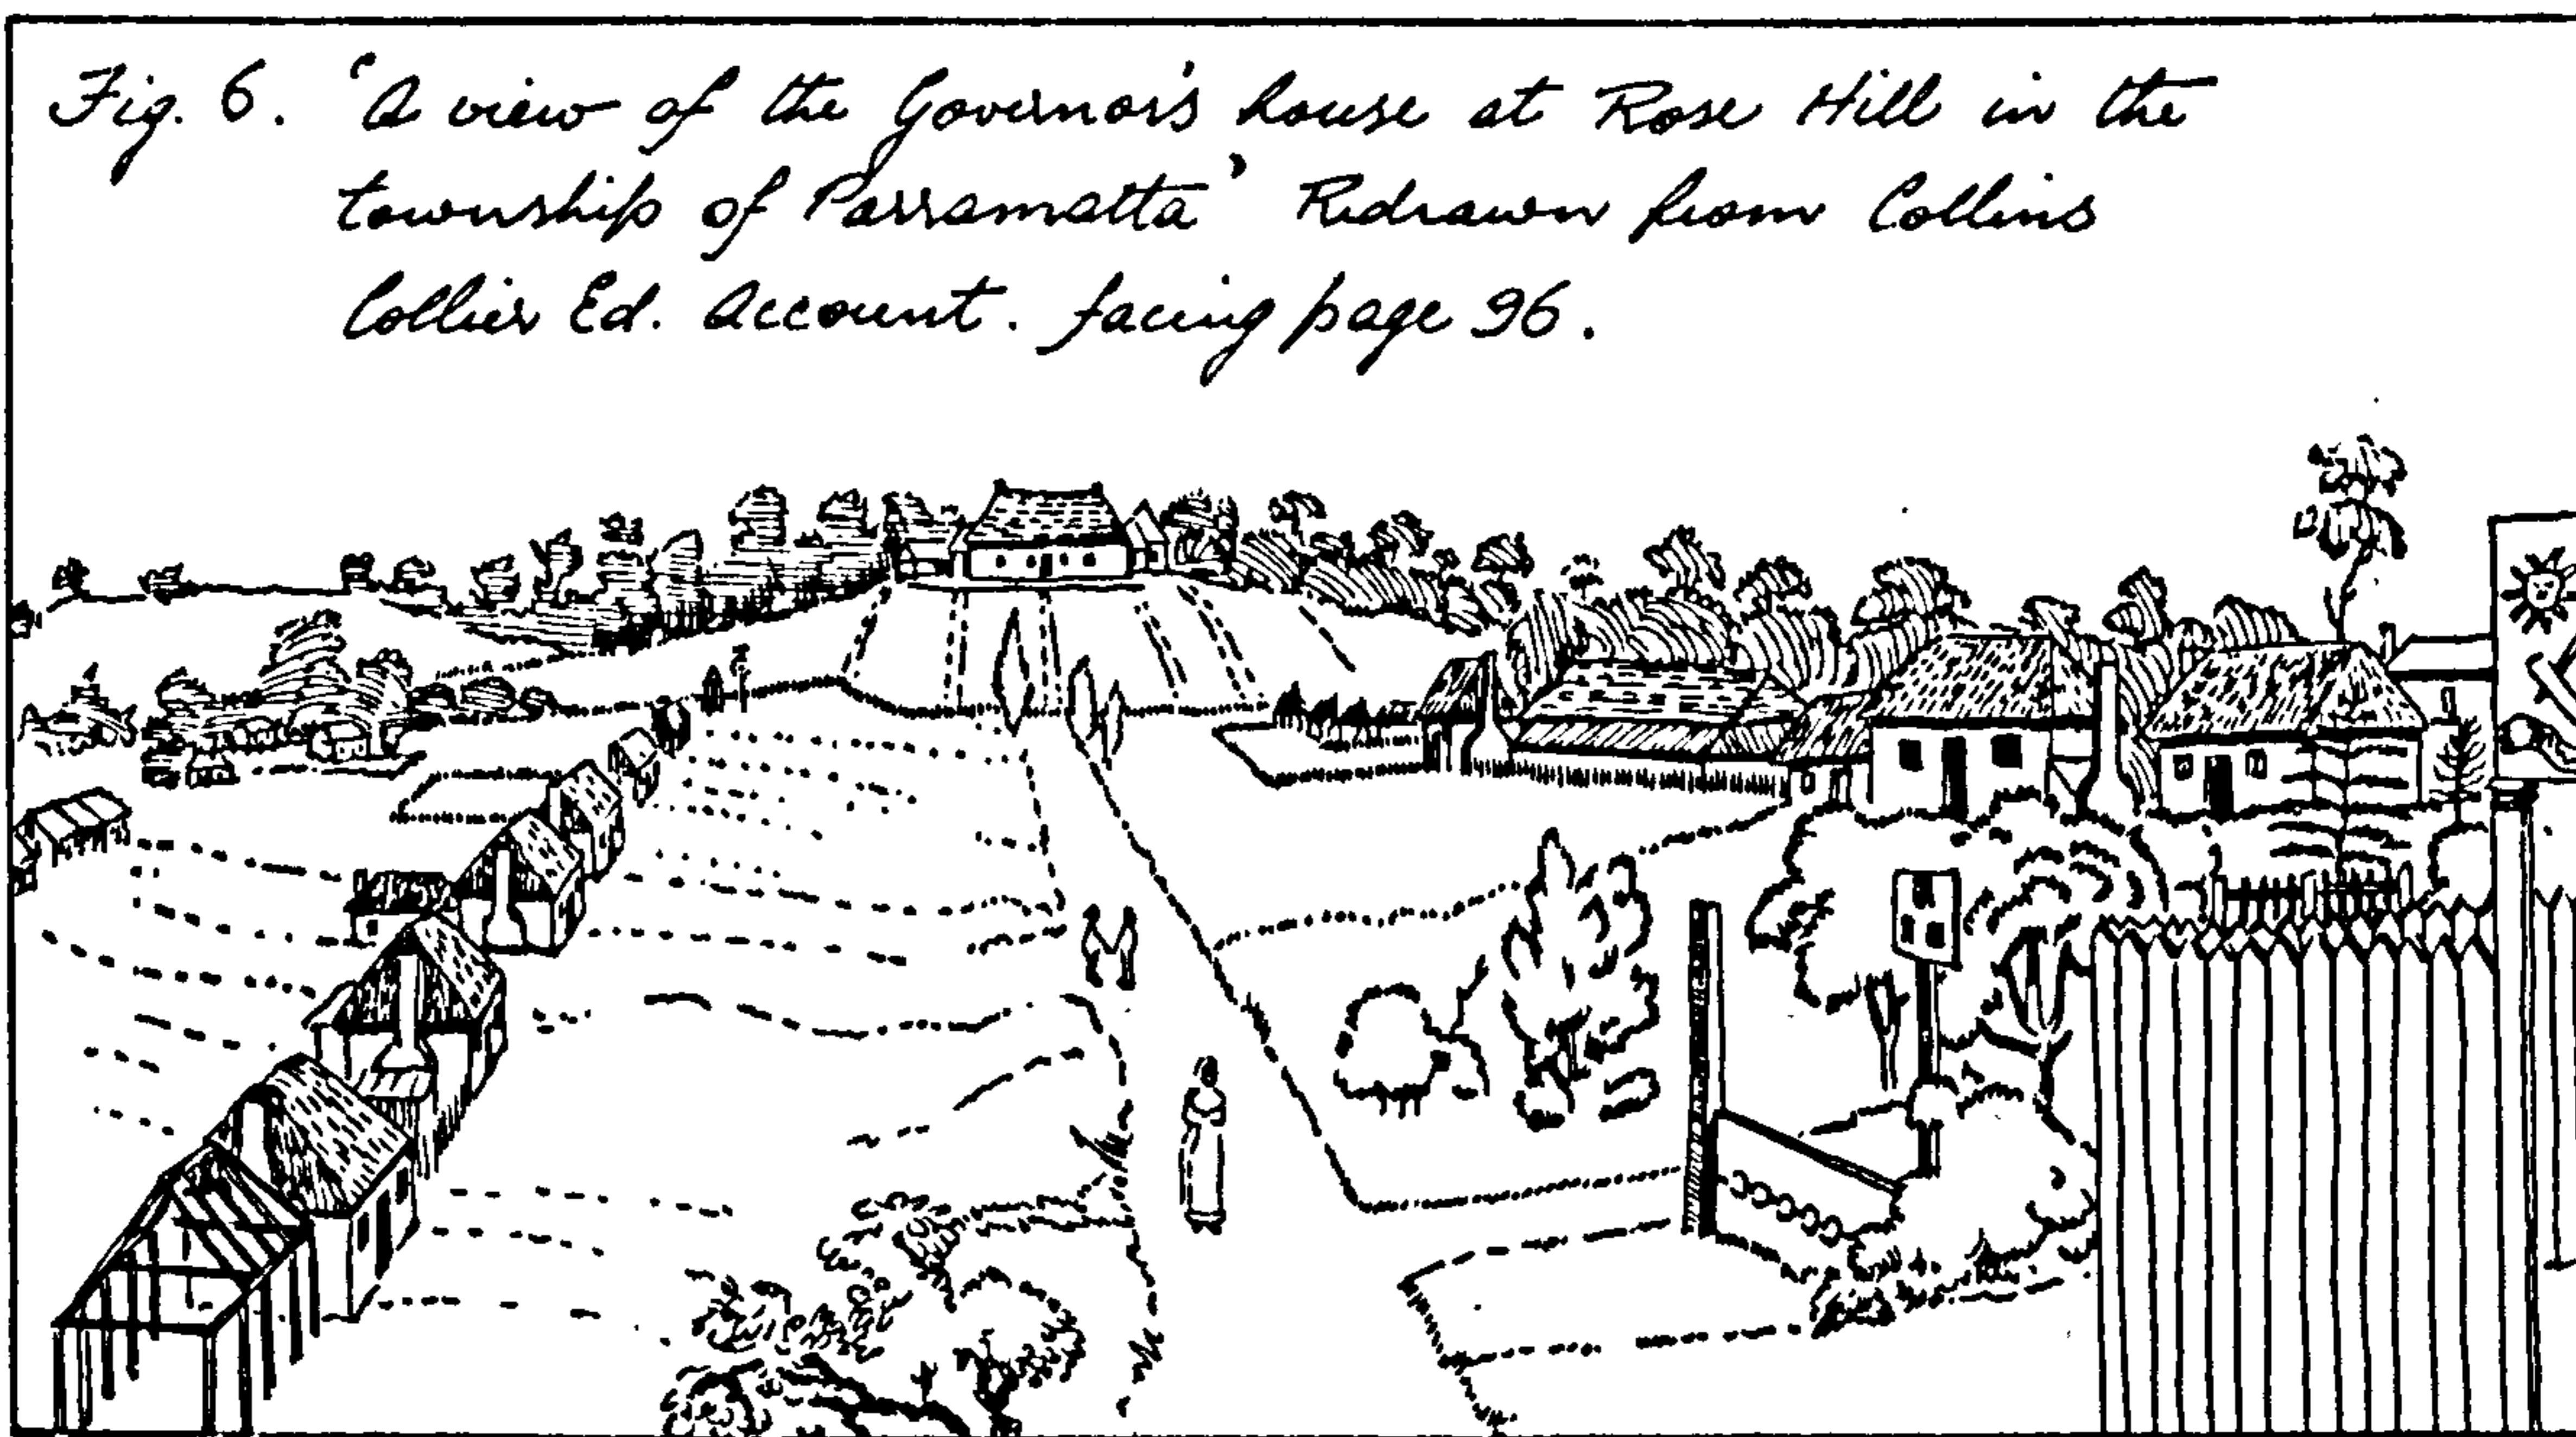 Fig. 6. 'A view of the Governor's house at Rose Hill in the
township of Parramatta' Redrawn from Collins
Collier Ed. Account. facing page 96.